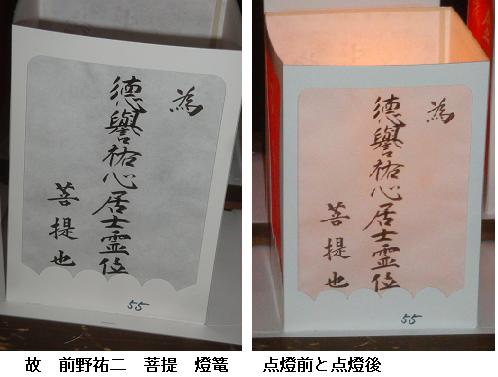 為
德譽祐心居士霊位
菩提也
55
為
德譽祐心居士霊位
菩提也
55
故 前野祐二 菩提 燈篭 点燈前と点燈後